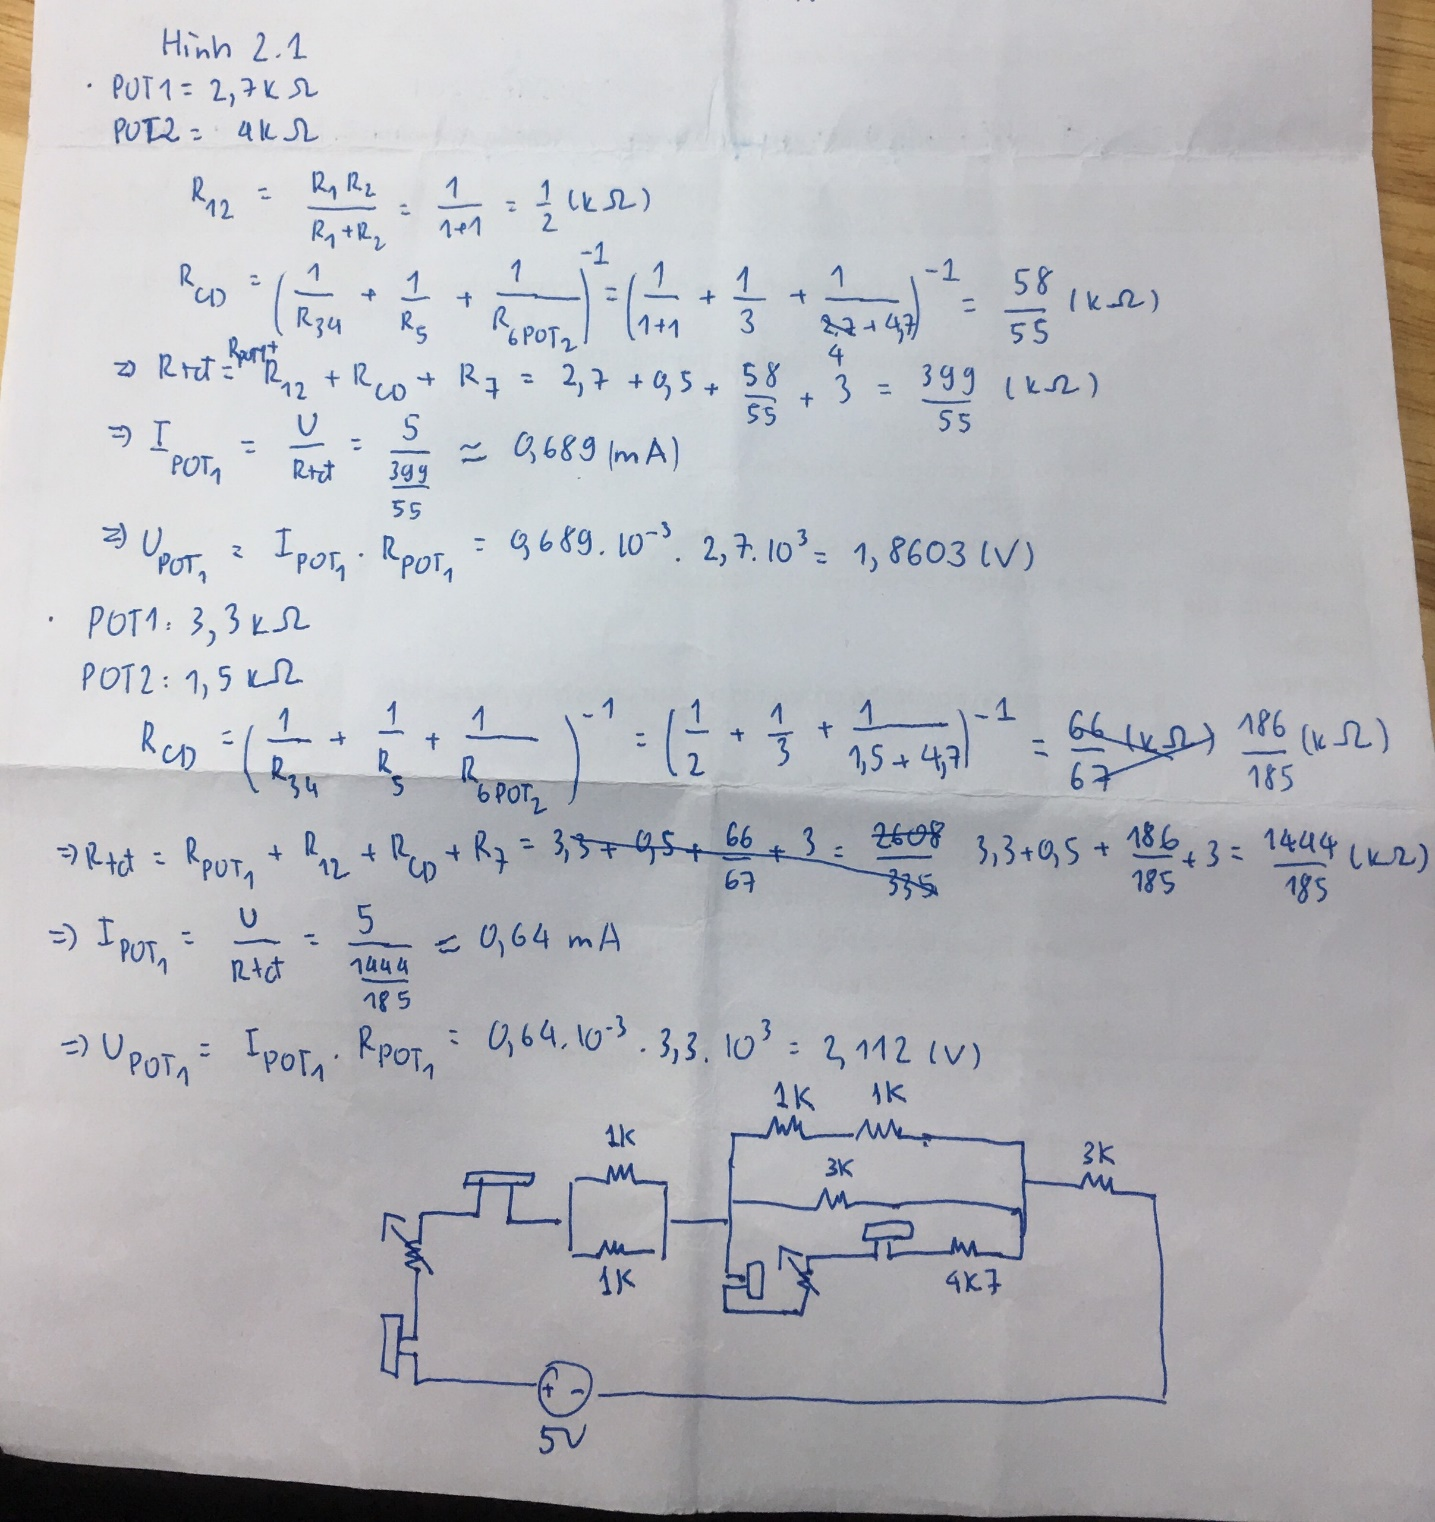 Hình 2.1
· POT1 = 2,7k Ω
POT2 = 4k Ω
R12 = R1 R2 / (R1 + R2) = 1 / (1+1) = 1/2 (kΩ)
RCD = (1/R34 + 1/R5 + 1/R6POT2)^-1 = (1/(1+1) + 1/3 + 1/(4 + 4,7))^-1 = 58/55 (kΩ)
=> Rtđ = RPOT1 + R12 + RCD + R7 = 2,7 + 0,5 + 58/55 + 3 = 399/55 (kΩ)
=> IPOT1 = U/Rtđ = 5/(399/55) ≈ 0,689 (mA)
=> UPOT1 = IPOT1 . RPOT1 = 0,689.10^-3 . 2,7.10^3 = 1,8603 (V)
· POT1: 3,3kΩ
POT2: 1,5kΩ
RCD = (1/R34 + 1/R5 + 1/R6POT2)^-1 = (1/2 + 1/3 + 1/(1,5 + 4,7))^-1 = 66/67 (kΩ) 186/185 (kΩ)
=> Rtđ = RPOT1 + R12 + RCD + R7 = 3,3 + 0,5 + 66/67 + 3 = 2608/335 3,3 + 0,5 + 186/185 + 3 = 1444/185 (kΩ)
=> IPOT1 = U/Rtđ = 5/(1444/185) ≈ 0,64 mA
=> UPOT1 = IPOT1 . RPOT1 = 0,64.10^-3 . 3,3.10^3 = 2,112 (V)
1K 1K
1K
3K
3K
1K
4K7
+ -
5V